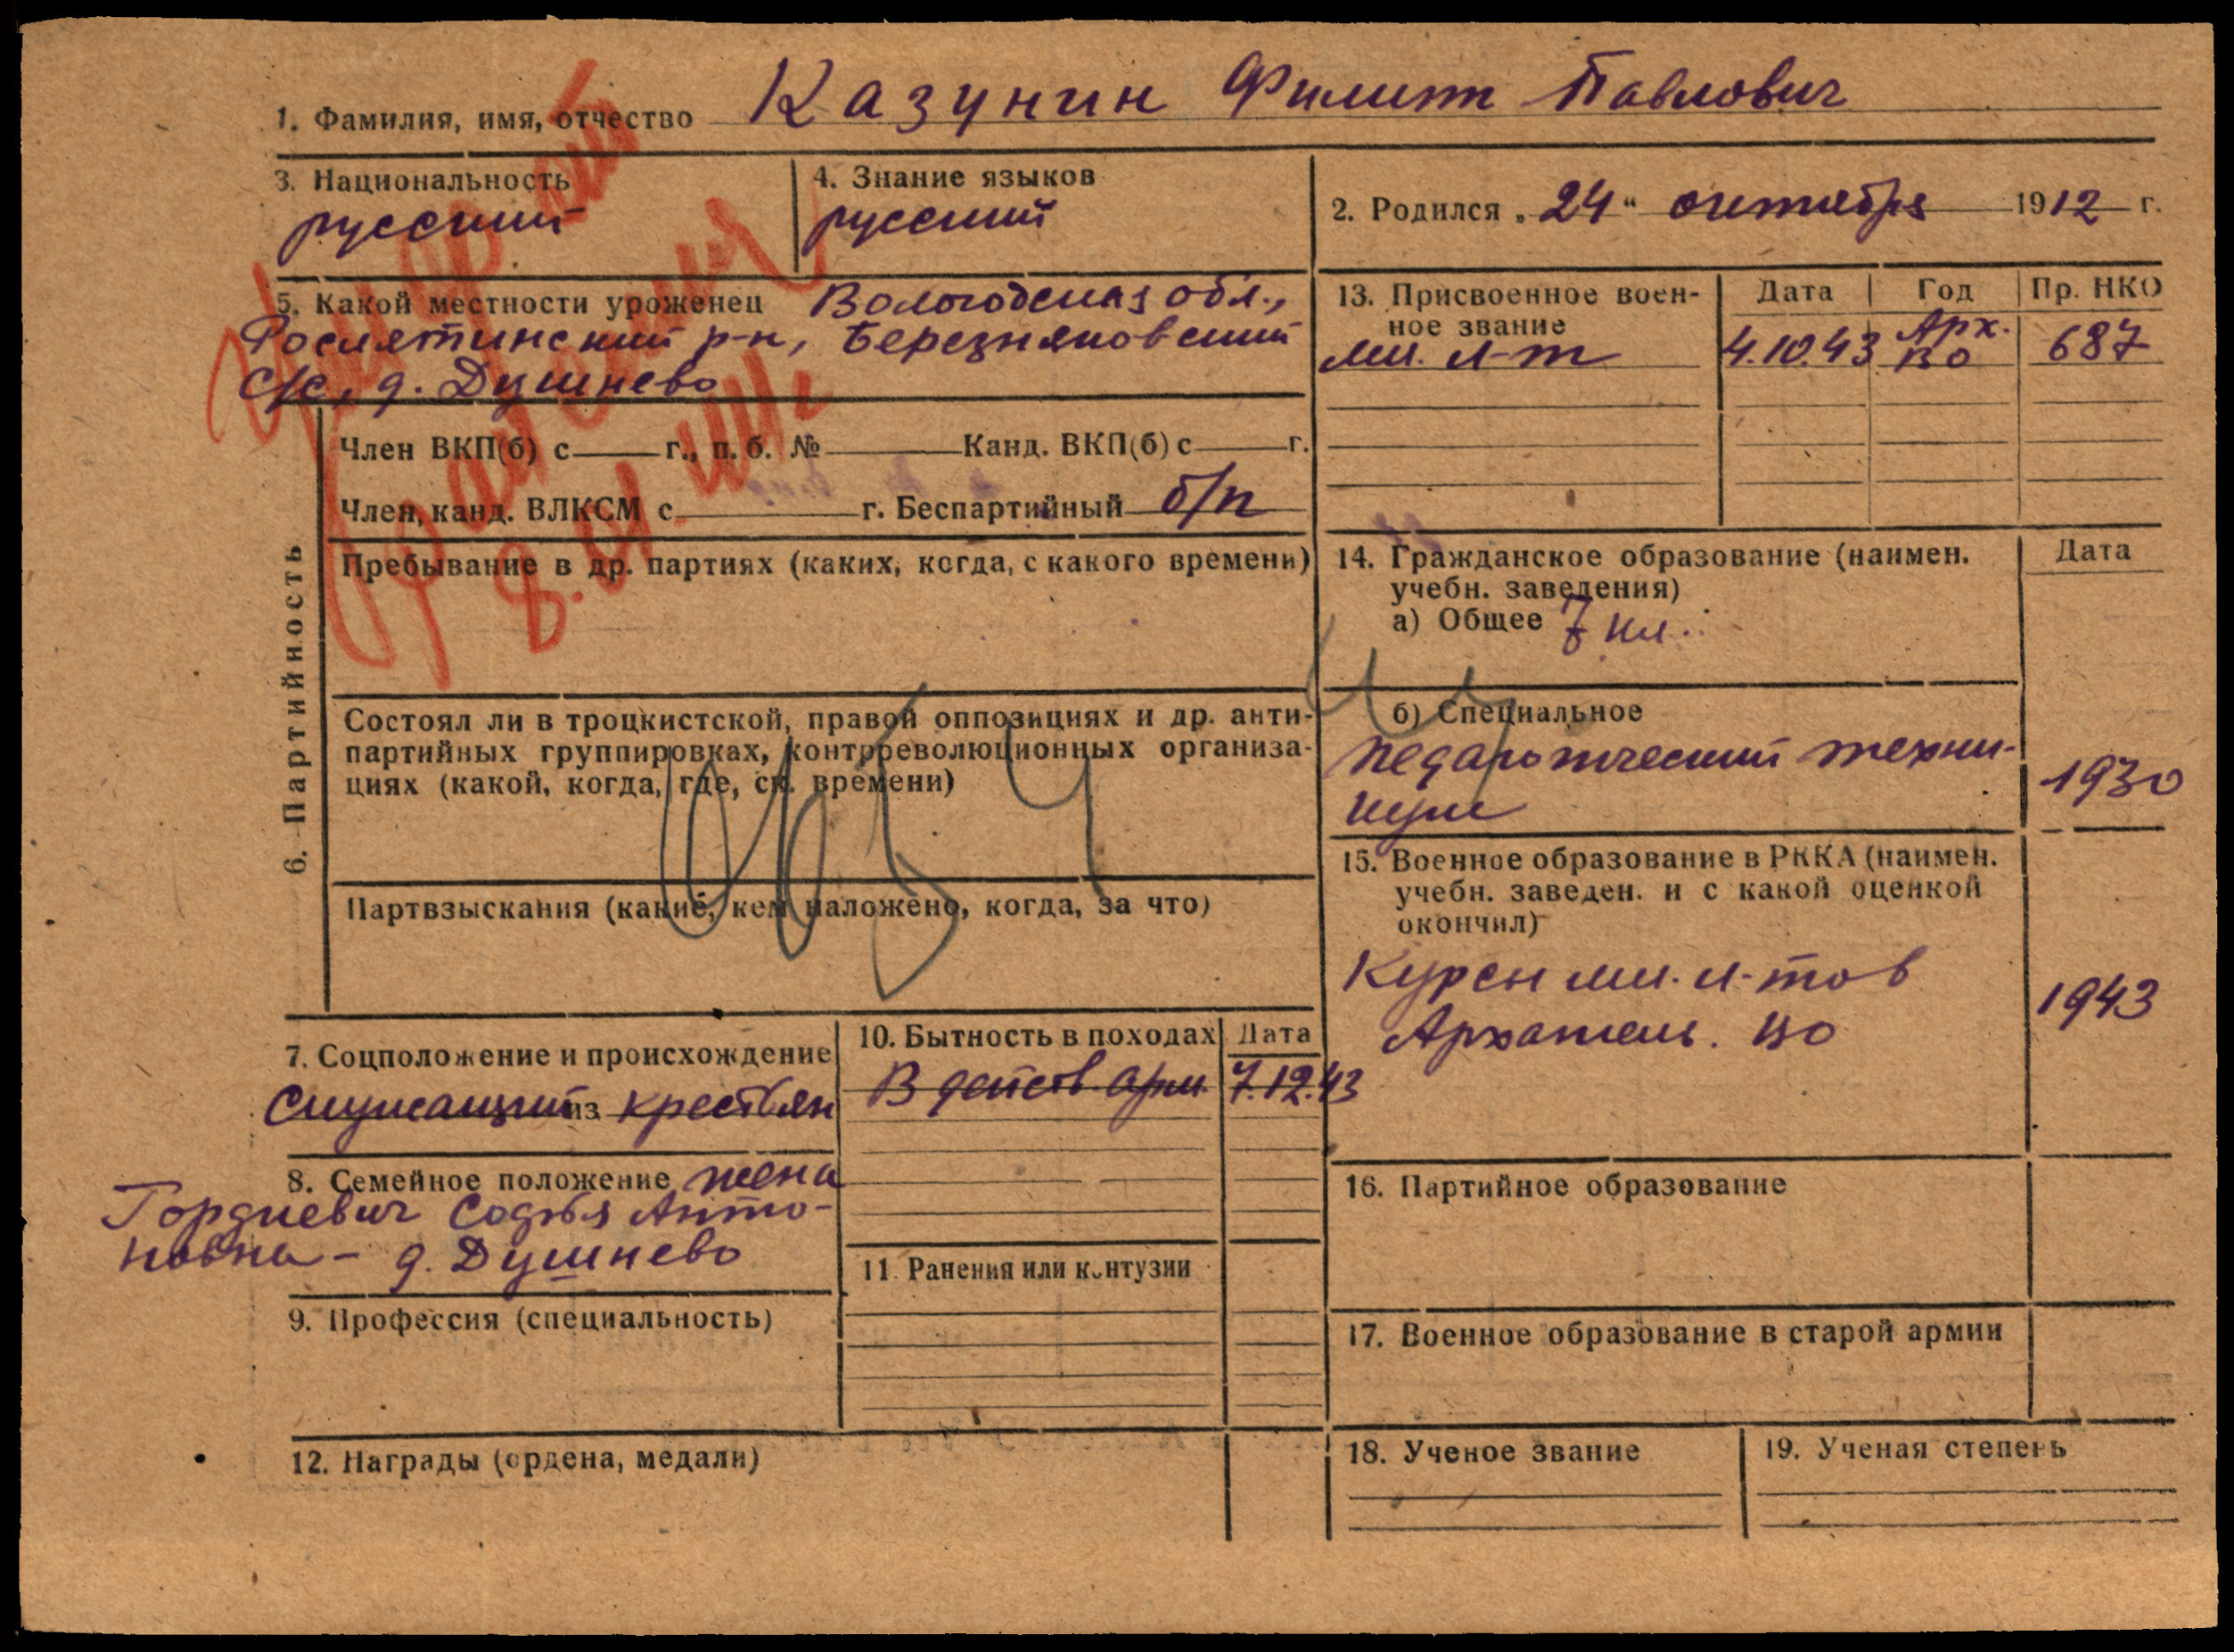 1. Фамилия, имя, отчество Казунин Филипп Павлович
3. Национальность
русский
4. Знание языков
русский
2. Родился „24“ октября 1912 г.
5. Какой местности уроженец Вологодская обл.,
Рослятинский р-н, Березняковский
с/с, д. Душнево
13. Присвоенное воен-
ное звание
Дата Год Пр. НКО
мл. л-т 4.10.43 Арх. ВО 687
6. Партийность
Член ВКП(б) с г., п. б. № Канд. ВКП(б) с г.
Член, канд. ВЛКСМ с г. Беспартийный б/п
Пребывание в др. партиях (каких, когда, с какого времени)
Состоял ли в троцкистской, правой оппозициях и др. анти-
партийных группировках, контрреволюционных организа-
циях (какой, когда, где, ск. времени)
Партвзыскания (какие, кем наложено, когда, за что)
14. Гражданское образование (наимен.
учебн. заведения)
Дата
а) Общее 7 кл.
б) Специальное
Педагогический техни-
кум 1930
15. Военное образование в РККА (наимен.
учебн. заведен. и с какой оценкой
окончил)
Курсы мл. л-тов
Архангель. ВО 1943
7. Соцположение и происхождение
Служащий из крестьян
8. Семейное положение жена
Гордиевич Софья Анто-
новна - д. Душнево
9. Профессия (специальность)
10. Бытность в походах Дата
В действ. арм. 7.12.43
11. Ранения или контузии
12. Награды (ордена, медали)
16. Партийное образование
17. Военное образование в старой армии
18. Ученое звание
19. Ученая степень